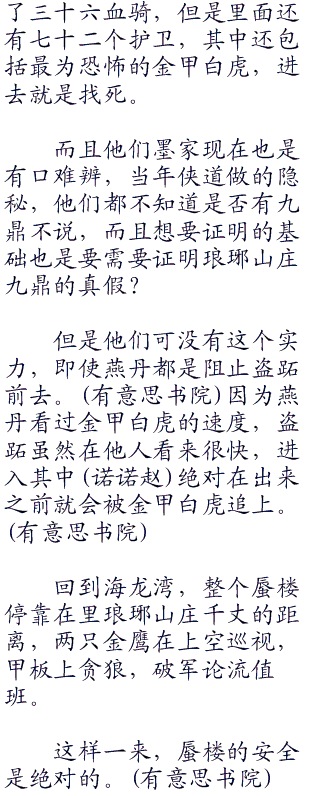 了三十六血骑，但是里面还
有七十二个护卫，其中还包
括最为恐怖的金甲白虎，进
去就是找死。
而且他们墨家现在也是
有口难辨，当年侠道做的隐
秘，他们都不知道是否有九
鼎不说，而且想要证明的基
础也是要需要证明琅琊山庄
九鼎的真假？
但是他们可没有这个实
力，即使燕丹都是阻止盗跖
前去。(有意思书院)因为燕
丹看过金甲白虎的速度，盗
跖虽然在他人看来很快，进
入其中(诺诺赵)绝对在出来
之前就会被金甲白虎追上。
(有意思书院)
回到海龙湾，整个蜃楼
停靠在里琅琊山庄千丈的距
离，两只金鹰在上空巡视，
甲板上贪狼，破军论流值
班。
这样一来，蜃楼的安全
是绝对的。(有意思书院)